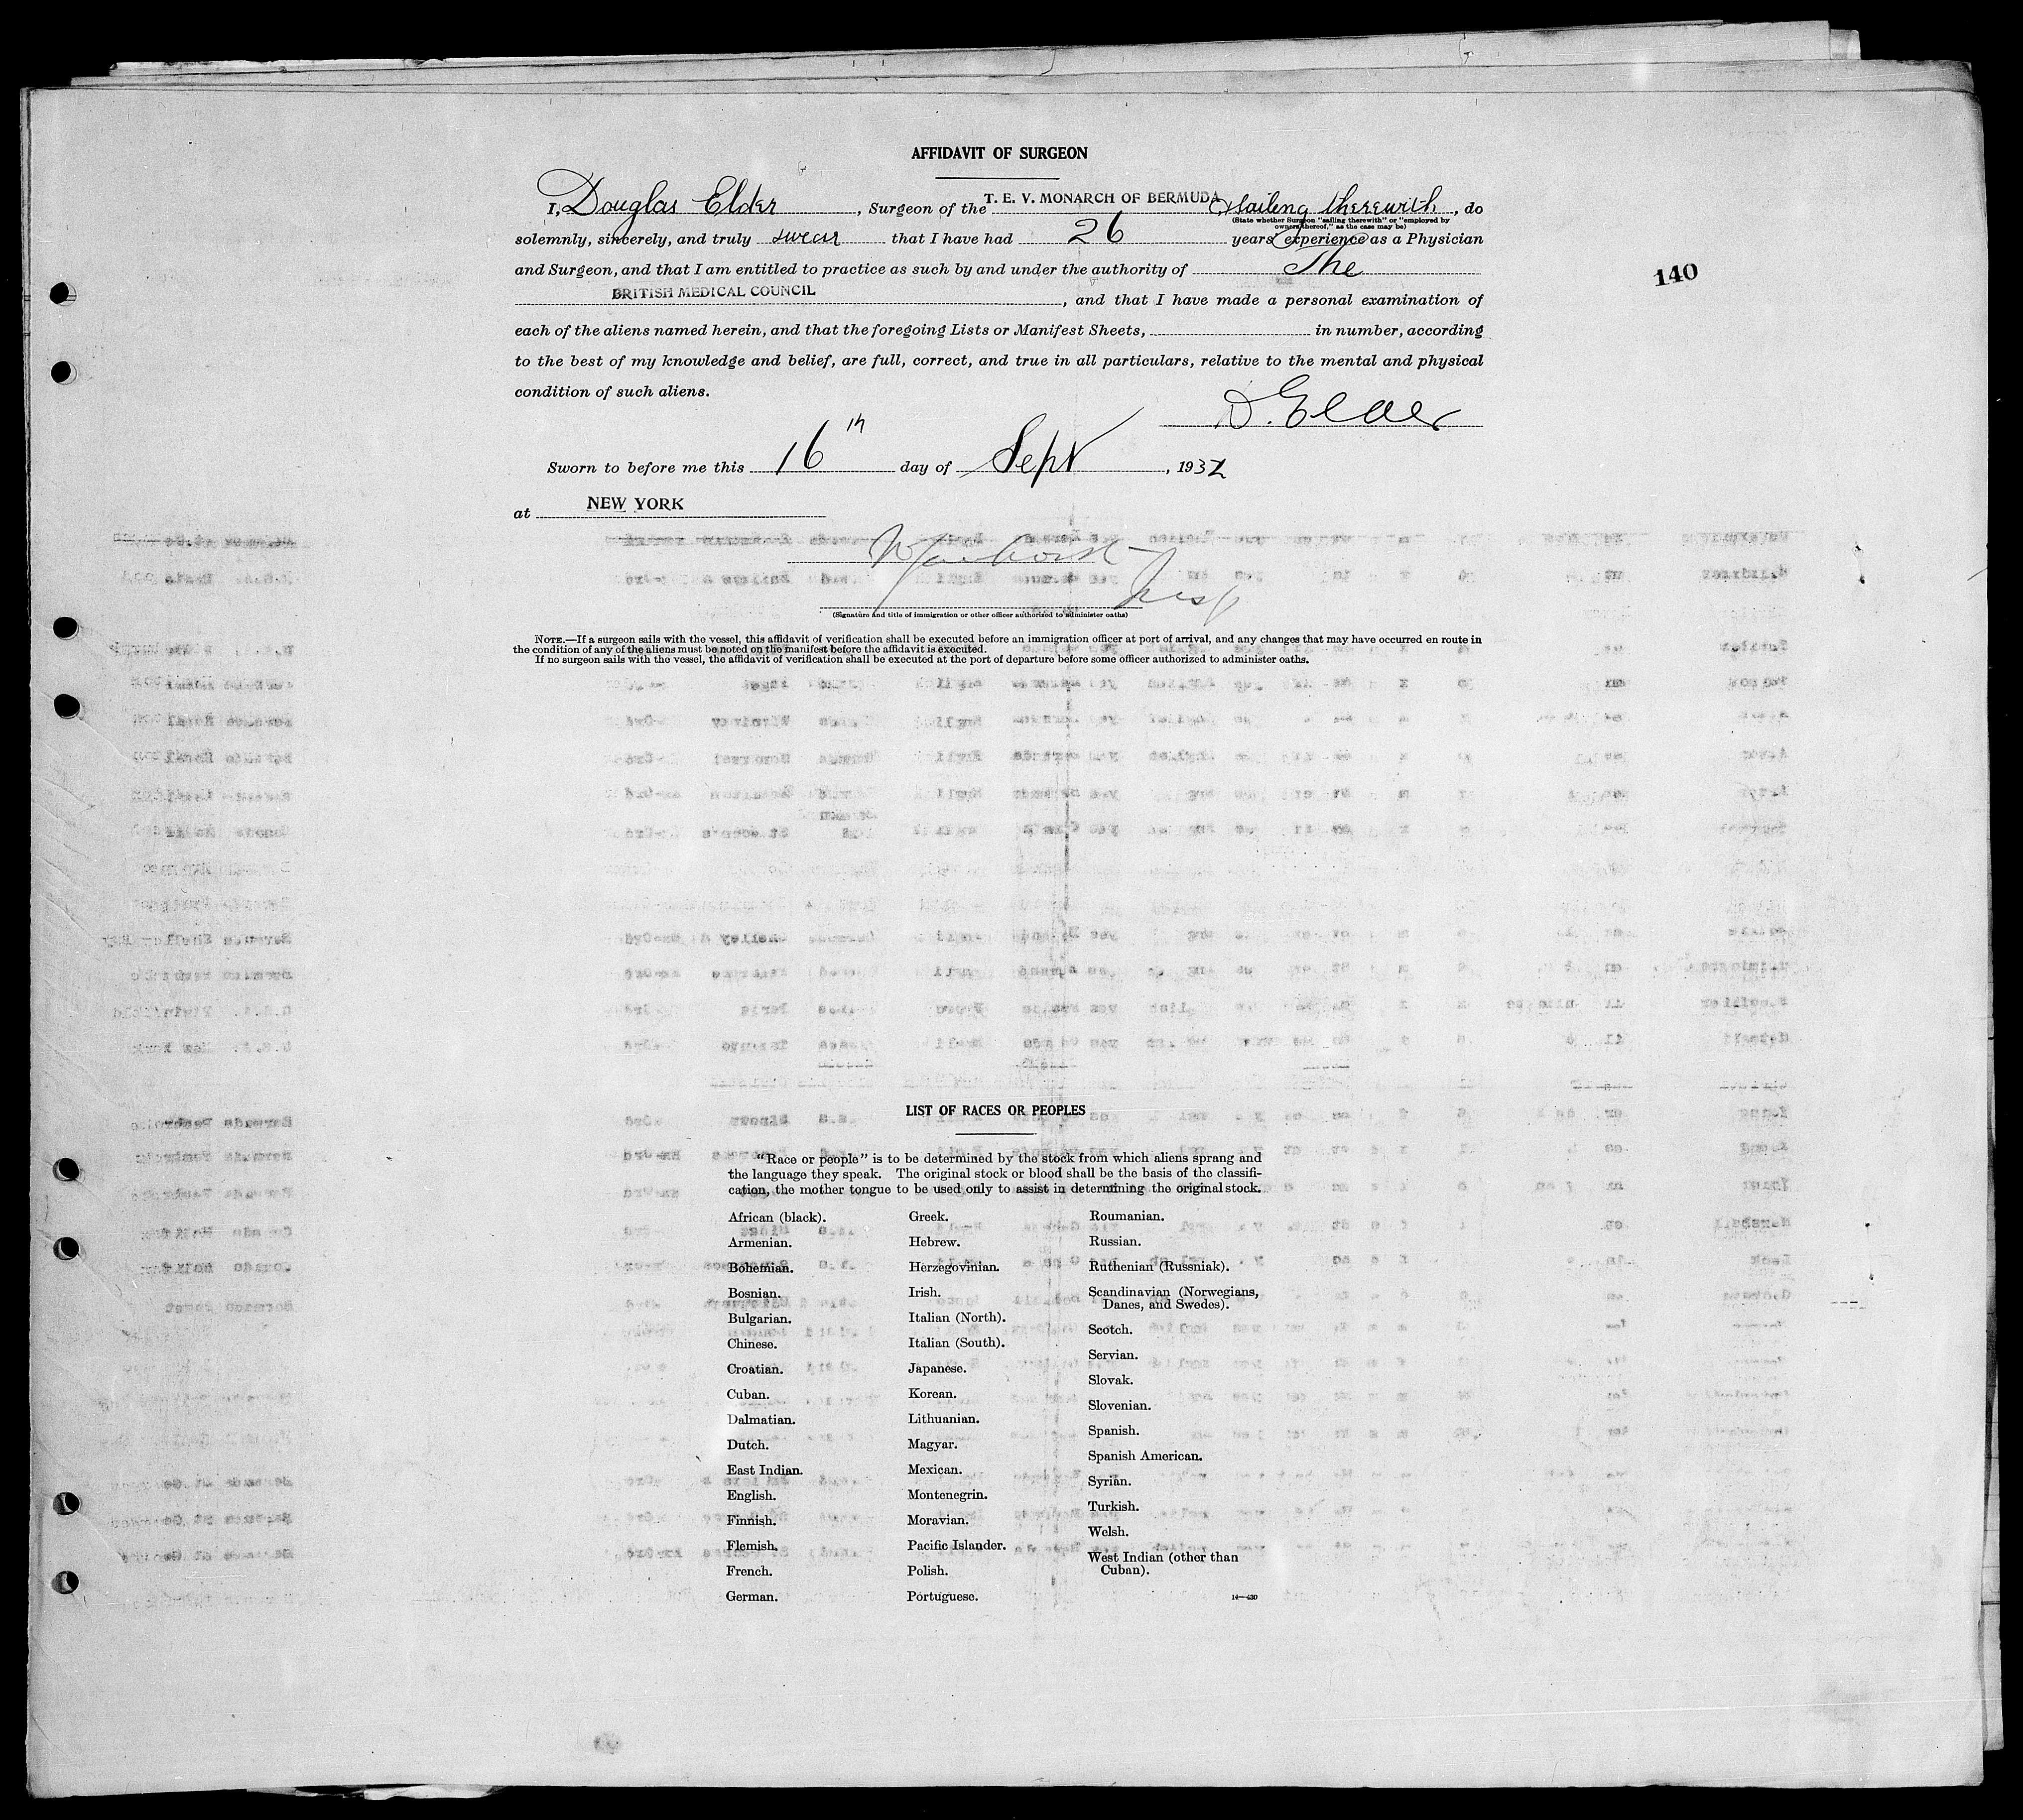 AFFIDAVIT OF SURGEON
I, Douglas Elder, Surgeon of the T. E. V. MONARCH OF BERMUDA, Sailing therewith, do
(State whether Surgeon "sailing therewith" or "employed by
owners thereof," as the case may be)
solemnly, sincerely, and truly swear that I have had 26 years' experience as a Physician
and Surgeon, and that I am entitled to practice as such by and under the authority of The
140
BRITISH MEDICAL COUNCIL, and that I have made a personal examination of
each of the aliens named herein, and that the foregoing Lists or Manifest Sheets, in number, according
to the best of my knowledge and belief, are full, correct, and true in all particulars, relative to the mental and physical
condition of such aliens.
D. Elder
Sworn to before me this 16th day of Sept, 1932
at NEW YORK
Insp
(Signature and title of immigration or other officer authorized to administer oaths)
NOTE.—If a surgeon sails with the vessel, this affidavit of verification shall be executed before an immigration officer at port of arrival, and any changes that may have occurred en route in
the condition of any of the aliens must be noted on the manifest before the affidavit is executed.
If no surgeon sails with the vessel, the affidavit of verification shall be executed at the port of departure before some officer authorized to administer oaths.
LIST OF RACES OR PEOPLES
"Race or people" is to be determined by the stock from which aliens sprang and
the language they speak. The original stock or blood shall be the basis of the classifi-
cation, the mother tongue to be used only to assist in determining the original stock.
African (black).
Armenian.
Bohemian.
Bosnian.
Bulgarian.
Chinese.
Croatian.
Cuban.
Dalmatian.
Dutch.
East Indian.
English.
Finnish.
Flemish.
French.
German.
Greek.
Hebrew.
Herzegovinian.
Irish.
Italian (North).
Italian (South).
Japanese.
Korean.
Lithuanian.
Magyar.
Mexican.
Montenegrin.
Moravian.
Pacific Islander.
Polish.
Portuguese.
Roumanian.
Russian.
Ruthenian (Russniak).
Scandinavian (Norwegians,
Danes, and Swedes).
Scotch.
Servian.
Slovak.
Slovenian.
Spanish.
Spanish American.
Syrian.
Turkish.
Welsh.
West Indian (other than
Cuban).
14—430